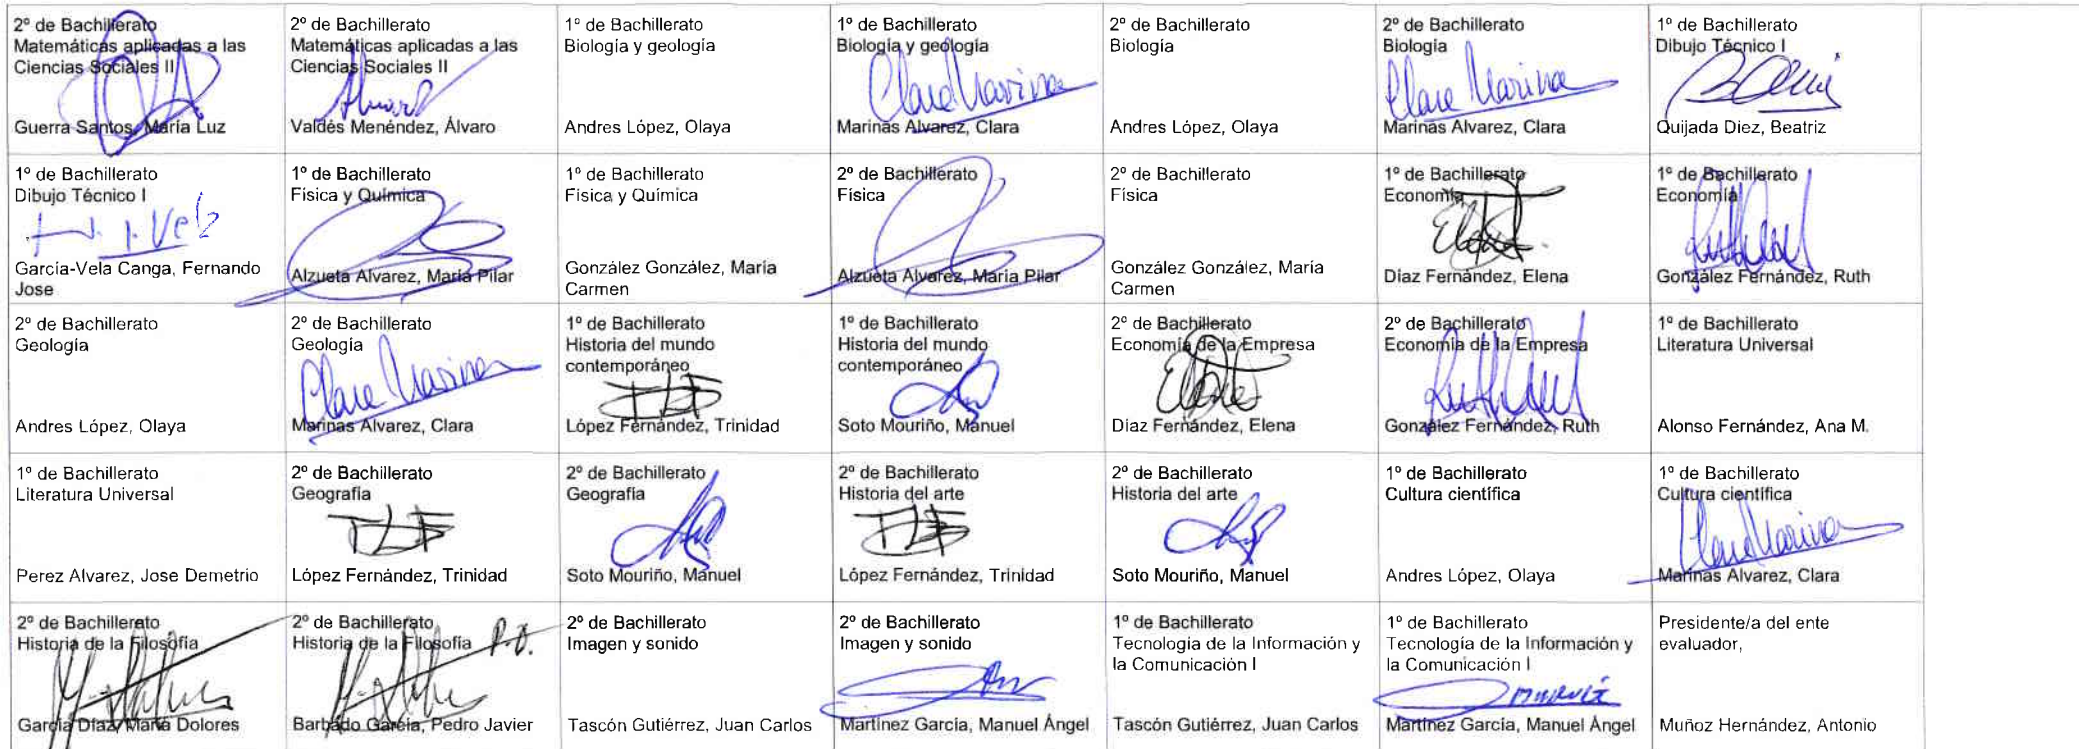 2º de Bachillerato
Matemáticas aplicadas a las
Ciencias Sociales II
Guerra Santos, María Luz
2º de Bachillerato
Matemáticas aplicadas a las
Ciencias Sociales II
Valdés Menéndez, Álvaro
1º de Bachillerato
Biología y geología
Andres López, Olaya
1º de Bachillerato
Biología y geología
Clara Marinas
Marinas Alvarez, Clara
2º de Bachillerato
Biología
Andres López, Olaya
2º de Bachillerato
Biología
Clara Marinas
Marinas Alvarez, Clara
1º de Bachillerato
Dibujo Técnico I
Quijada Diez, Beatriz
1º de Bachillerato
Dibujo Técnico I
García-Vela Canga, Fernando
Jose
1º de Bachillerato
Física y Química
Alzueta Alvarez, María Pilar
1º de Bachillerato
Física y Química
González González, María
Carmen
2º de Bachillerato
Física
Alzueta Alvarez, María Pilar
2º de Bachillerato
Física
González González, María
Carmen
1º de Bachillerato
Economía
Díaz Fernández, Elena
1º de Bachillerato
Economía
González Fernández, Ruth
2º de Bachillerato
Geología
Andres López, Olaya
2º de Bachillerato
Geología
Clara Marinas
Marinas Alvarez, Clara
1º de Bachillerato
Historia del mundo
contemporáneo
López Fernández, Trinidad
1º de Bachillerato
Historia del mundo
contemporáneo
Soto Mouriño, Manuel
2º de Bachillerato
Economía de la Empresa
Díaz Fernández, Elena
2º de Bachillerato
Economía de la Empresa
González Fernández, Ruth
1º de Bachillerato
Literatura Universal
Alonso Fernández, Ana M.
1º de Bachillerato
Literatura Universal
Perez Alvarez, Jose Demetrio
2º de Bachillerato
Geografía
López Fernández, Trinidad
2º de Bachillerato
Geografía
Soto Mouriño, Manuel
2º de Bachillerato
Historia del arte
López Fernández, Trinidad
2º de Bachillerato
Historia del arte
Soto Mouriño, Manuel
1º de Bachillerato
Cultura científica
Andres López, Olaya
1º de Bachillerato
Cultura científica
Clara Marinas
Marinas Alvarez, Clara
2º de Bachillerato
Historia de la Filosofía
García Díaz, María Dolores
2º de Bachillerato
Historia de la Filosofía P.O.
Barbado García, Pedro Javier
2º de Bachillerato
Imagen y sonido
Tascón Gutiérrez, Juan Carlos
2º de Bachillerato
Imagen y sonido
Martínez García, Manuel Ángel
1º de Bachillerato
Tecnología de la Información y
la Comunicación I
Tascón Gutiérrez, Juan Carlos
1º de Bachillerato
Tecnología de la Información y
la Comunicación I
Martínez García, Manuel Ángel
Presidente/a del ente
evaluador,
Muñoz Hernández, Antonio